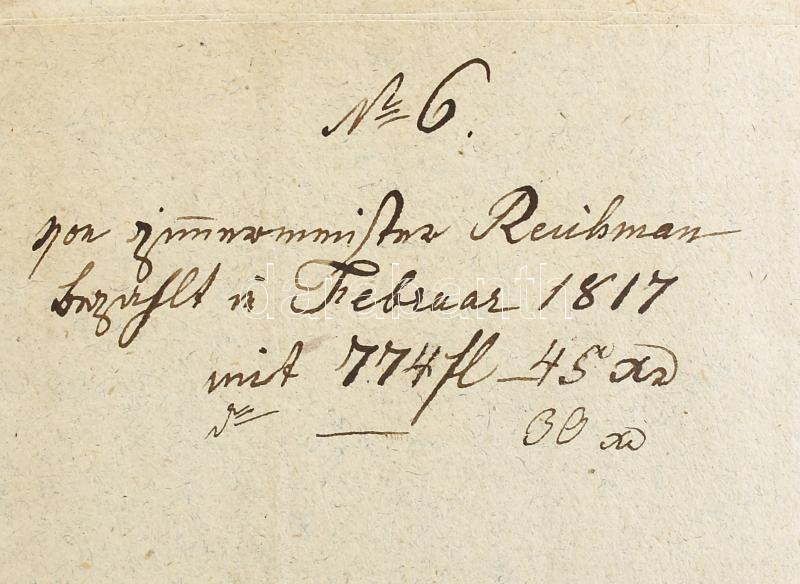 No 6.
von zimmermeister Reichman
bezahlt in Februar 1817
mit 774 fl 45 xr
xr
darabanth